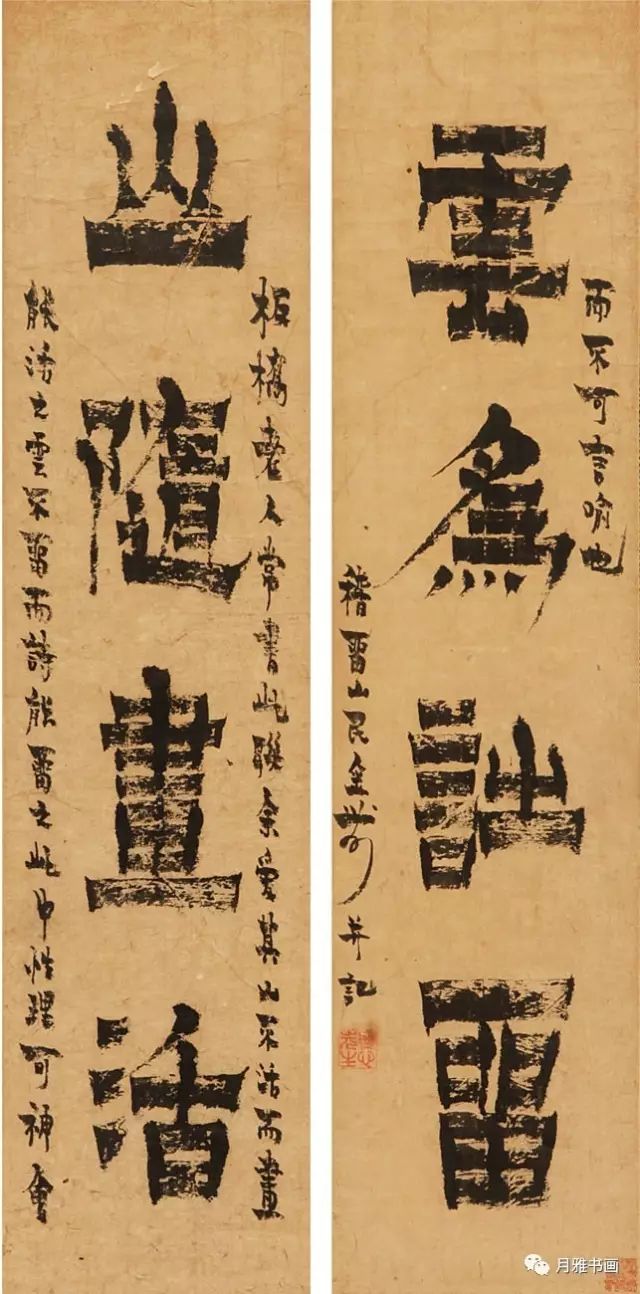 雲為詩畱
山隨畫活
板橋老人常書此聯余愛其山不活而畫
能活之雲不畱而詩能畱之此中性理可神會
而不可言喻也
稽畱山民金農并記
月雅书画